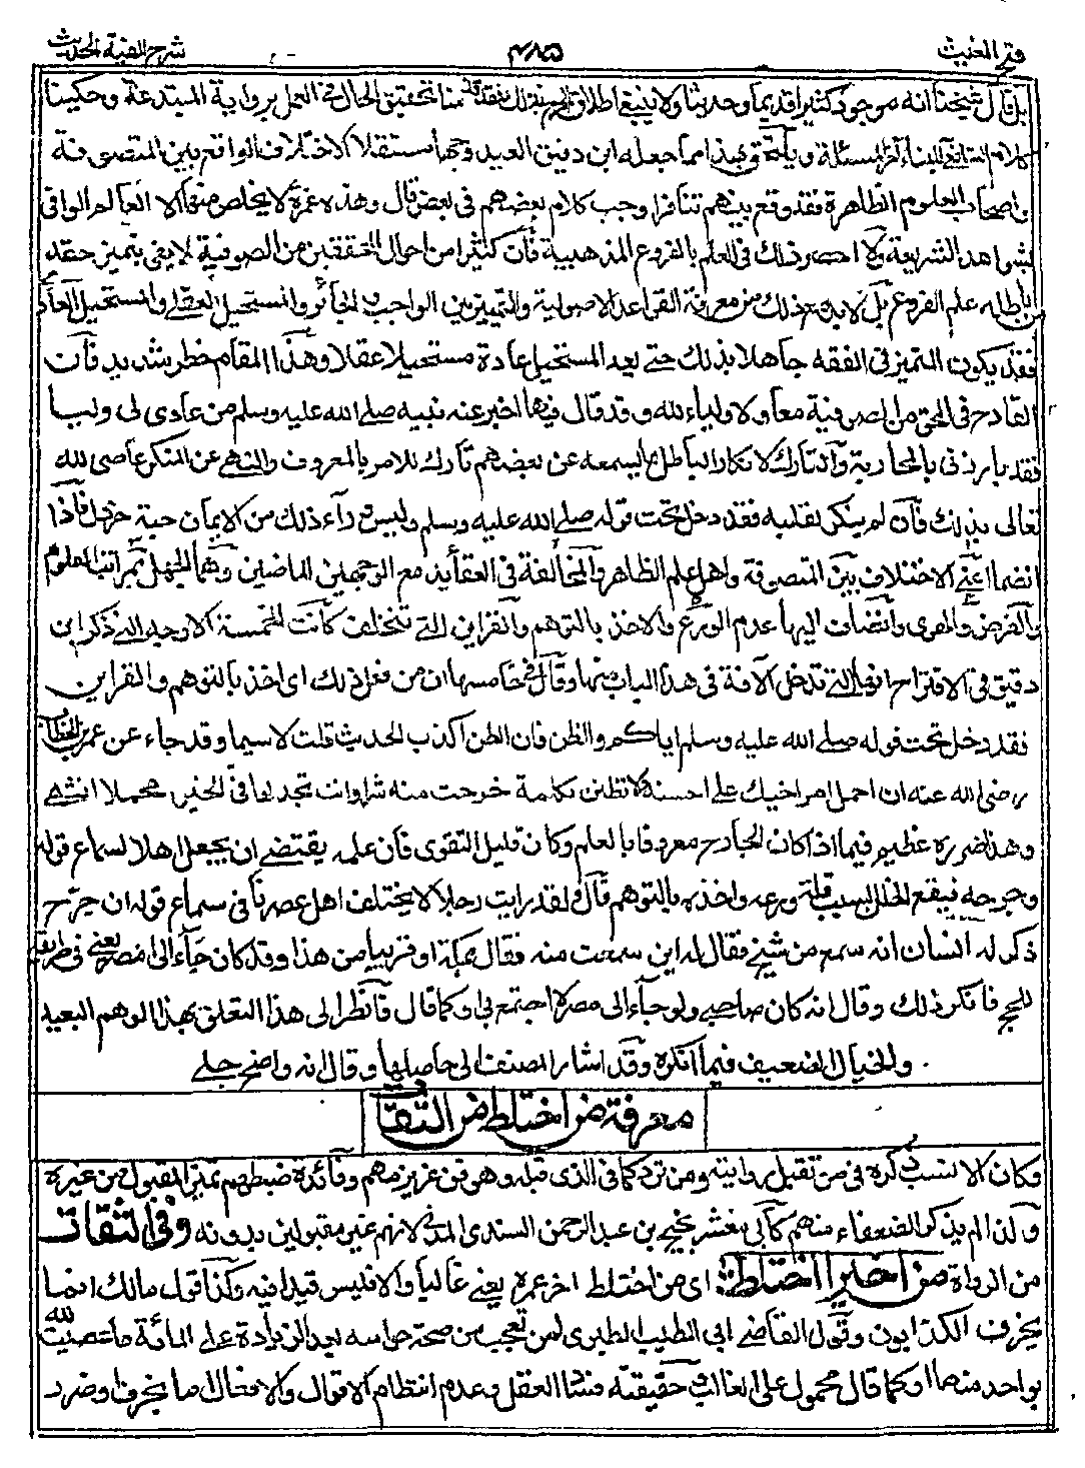 فتح المغيث ٤٨٥ شرح الفية الحديث
بل قال شيخنا انه موجود كثيرا قديما وحديثا ولا ينبغي اطلاق بذلك فقد قدمنا تحقيق الحال في العمل برواية المبتدعة وحكينا
كلام الشافعي المسئلة ويلتحق بهذا مما جعله ابن دقيق العيد وجها مستقلا الاختلاف الواقع بين المتصوفة
واصحاب العلوم الظاهرة فقد وقع بينهم تنافرا وجب كلام بعضهم في بعض قال وهذه غمرة لا يخلص منها الا العالم الوافي
بشواهد الشريعة ولا احصر ذلك في العلم بالفروع المذهبية فان كثيرا من احوال المحققين من الصوفية لا يفي بتميز حقه
من باطله علم الفروع بل لا بد مع ذلك من معرفة القواعد الاصولية والتمييز بين الواجب والجائز والمستحيل العقلي والمستحيل العادي
فقد يكون المتميز في الفقه جاهلا بذلك حتى يعد المستحيل عادة مستحيلا عقلا وهذا المقام خطر شديد فان
القادح في المحق من الصوفية معاد لاولياء الله وقد قال فيما اخبر عنه نبيه صلى الله عليه وسلم من عادى لي وليا
فقد بارزني بالمحاربة والتارك لانكار الباطل مما يسمعه عن بعضهم تارك للامر بالمعروف والنهي عن المنكر عاصي لله
تعالى بذلك فان لم ينكر بقلبه فقد دخل تحت قوله صلى الله عليه وسلم وليس وراء ذلك من الايمان حبة خردل فاذا
انضما اعني الاختلاف بين المتصوفة واهل علم الظاهر والمخالفة في العقائد مع الوجهين الماضيين وهما الجهل بمراتب العلوم
والغرض والهوى وانضاف اليها عدم الورع والاخذ بالتوهم والقراين التي تتخلف كانت الخمسة الاوجه التي ذكر ابن
دقيق في الاقتراح انها التي تدخل الآفة في هذا الباب منها وقال في خامسها ان من فعل ذلك اي اخذ بالتوهم والقراين
فقد دخل تحت قوله صلى الله عليه وسلم اياكم والظن فان الظن اكذب الحديث قلت لا سيما وقد جاء عن عمر بن الخطاب
رضي الله عنه ان احمل امر اخيك على احسنه ولا تظنن بكلمة خرجت منه شرا وانت تجد لها في الخير محملا انتهى
وهذا ضرره عظيم فيما اذا كان الجارح معروفا بالعلم وكان قليل التقوى فان علمه يقتضي ان يجعل اهلا لسماع قوله
وجرحه فيقع الخلل بسبب قلة ورعه واخذه بالتوهم قال ولقد رايت رجلا لا يختلف اهل عصرنا في سماع قوله ان جرح
ذكر له انسان انه سمع من شيخ فقال له اين سمعت منه فقال بمكة او قريبا من هذا وقد كان جاء الى مصر يعني في طريقه
للحج فانكر ذلك وقال انه كان صاحبي ولو جاء الى مصر لاجتمع بي او كما قال فانظر الى هذا التعلق بهذا الوهم البعيد
والخيال الضعيف فيما انكره وقد اشار المصنف الى حاصلها وقال انه واضح جلي
معرفة من اختلط من الثقات
وكان الانسب ذكره في من تقبل روايته ومن ترد كما في الذي قبله وهو فن عزيز مهم وفائدة ضبطهم تمييز المقبول من غيره
ولذا لم يذكر الضعفاء منهم كابي معشر نجيح بن عبد الرحمن السندي المدني لانهم غير مقبولين بدونه وفي الثقات
من الرواة من اخيرا اختلط اي من اختلط اخر عمره يعني غالبا والا فليس قيدا فيه وكذا قول مالك انما
يخرف الكذابون وقول القاضي ابي الطيب الطبري لمن تعجب من صحة حواسه بعد الزيادة على المائة ما عصيت الله
بواحد منها او كما قال محمول على الغالب وحقيقته فساد العقل وعدم انتظام الاقوال والافعال اما بخرف او ضرر